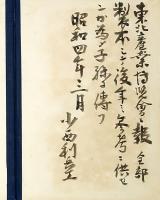 東北産業博覧会報全部
製本シテ後年ノ参考ニ供セ
ンガ為メ子孫ニ傳フ
昭和四年三月
小西利兵衛